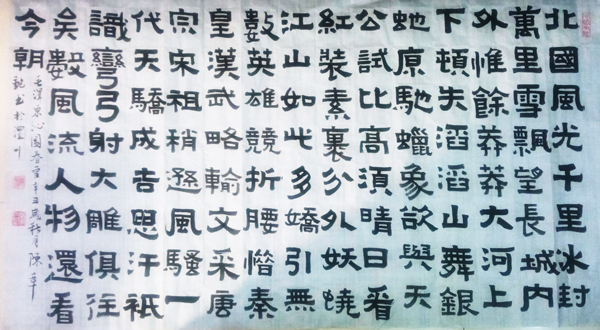 北國風光千里冰封
萬里雪飄望長城内
外惟餘莽莽大河上
下頓失滔滔山舞銀
虵原馳蠟象欲與天
公試比高須晴日看
紅裝素裹分外妖嬈
江山如此多嬌引無
數英雄競折腰惜秦
皇漢武略輸文采唐
宗宋祖稍遜風騷一
代天驕成吉思汗祇
識彎弓射大雕俱往
矣數風流人物還看
今朝
毛澤東沁園春雪辛丑